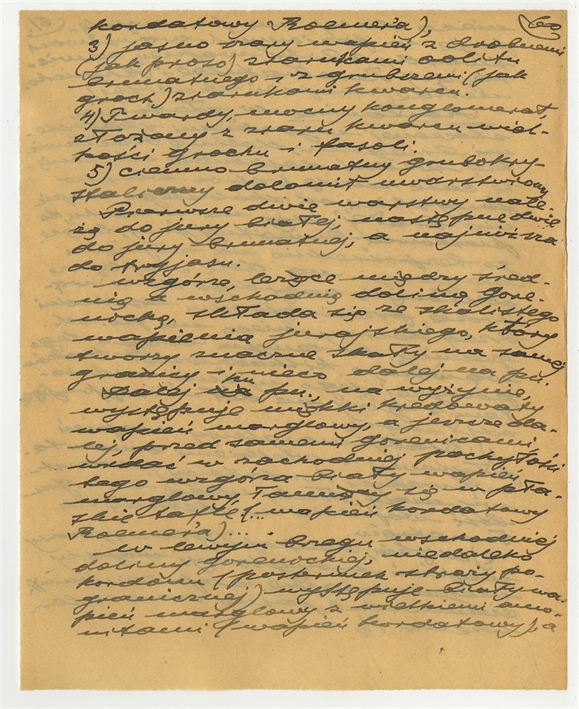 60
kordatowy Roemer'a),
3) jasno szary wapień z drobnemi
(jak proso) ziarnkami oolitu
brunatnego i z grubszemi (jak
groch) ziarnkami kwarcu.
4) Twardy, mocny konglomerat,
złożony z ziarn kwarcu wiel-
kości grochu i fasoli.
5) ciemno brunatny grubokry-
staliczny dolomit uwarstwiony
Pierwsze dwie warstwy nale-
żą do jury białej, następne dwie
do jury brunatnej, a najniższa
do tryjasu.
wzgórze, leżące między śred-
nią a wschodnią doliną gore-
nicką, składa się ze skalistego
wapienia jurajskiego, który
tworzy znaczne skały na samej
granicy i nieco dalej na pn.
Dalej ku pn., na wyżynie,
występuje miękki kredowaty
wapień marglowy, a jeszcze da-
lej, przed samemi gorenicami
widać w zachodniej pochyłości
tego wzgórza biały wapień
marglowy, łamiący się w pła-
skie tafle (... wapień kordatowy
Roemer'a)...
w lewym brzegu wschodniej
doliny gorenickiej, niedaleko
kordonu (posterunek straży po-
granicznej) występuje biały wa-
pień marglowy z wielkiemi amo-
nitami (wapień kordatowy), a